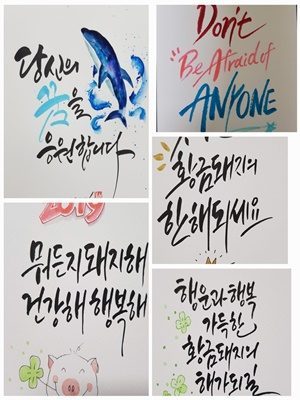 당신의
꿈을
응원합니다
Don't
Be Afraid of
ANYONE
황금돼지의
한해되세요
2019
뭐든지돼지해
건강해 행복해
행운과 행복
가득한
황금돼지의
해가되길